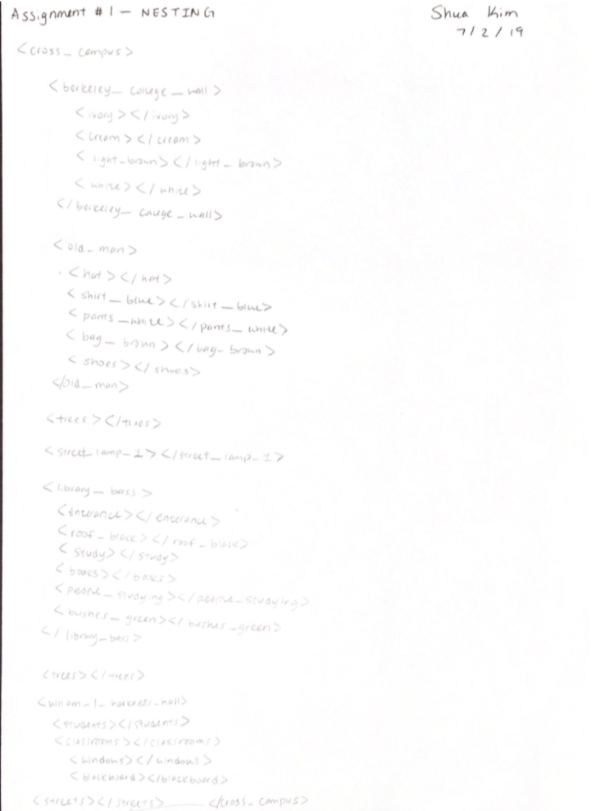 Assignment #1 — NESTING
Shua Kim
7/2/19
<cross_campus>
<berkeley_college_wall>
<ivory></ivory>
<cream></cream>
<light_brown></light_brown>
<white></white>
</berkeley_college_wall>
<old_man>
<hat></hat>
<shirt_blue></shirt_blue>
<pants_white></pants_white>
<bag_brown></bag_brown>
<shoes></shoes>
</old_man>
<trees></trees>
<street_lamp_1></street_lamp_1>
<library_bass>
<enterance></enterance>
<roof_black></roof_black>
<study></study>
<books></books>
<people_studying></people_studying>
<bushes_green></bushes_green>
</library_bass>
<trees></trees>
<william_l_harkness_hall>
<students></students>
<classrooms></classrooms>
<windows></windows>
<blackboard></blackboard>
<streets></streets> </cross_campus>